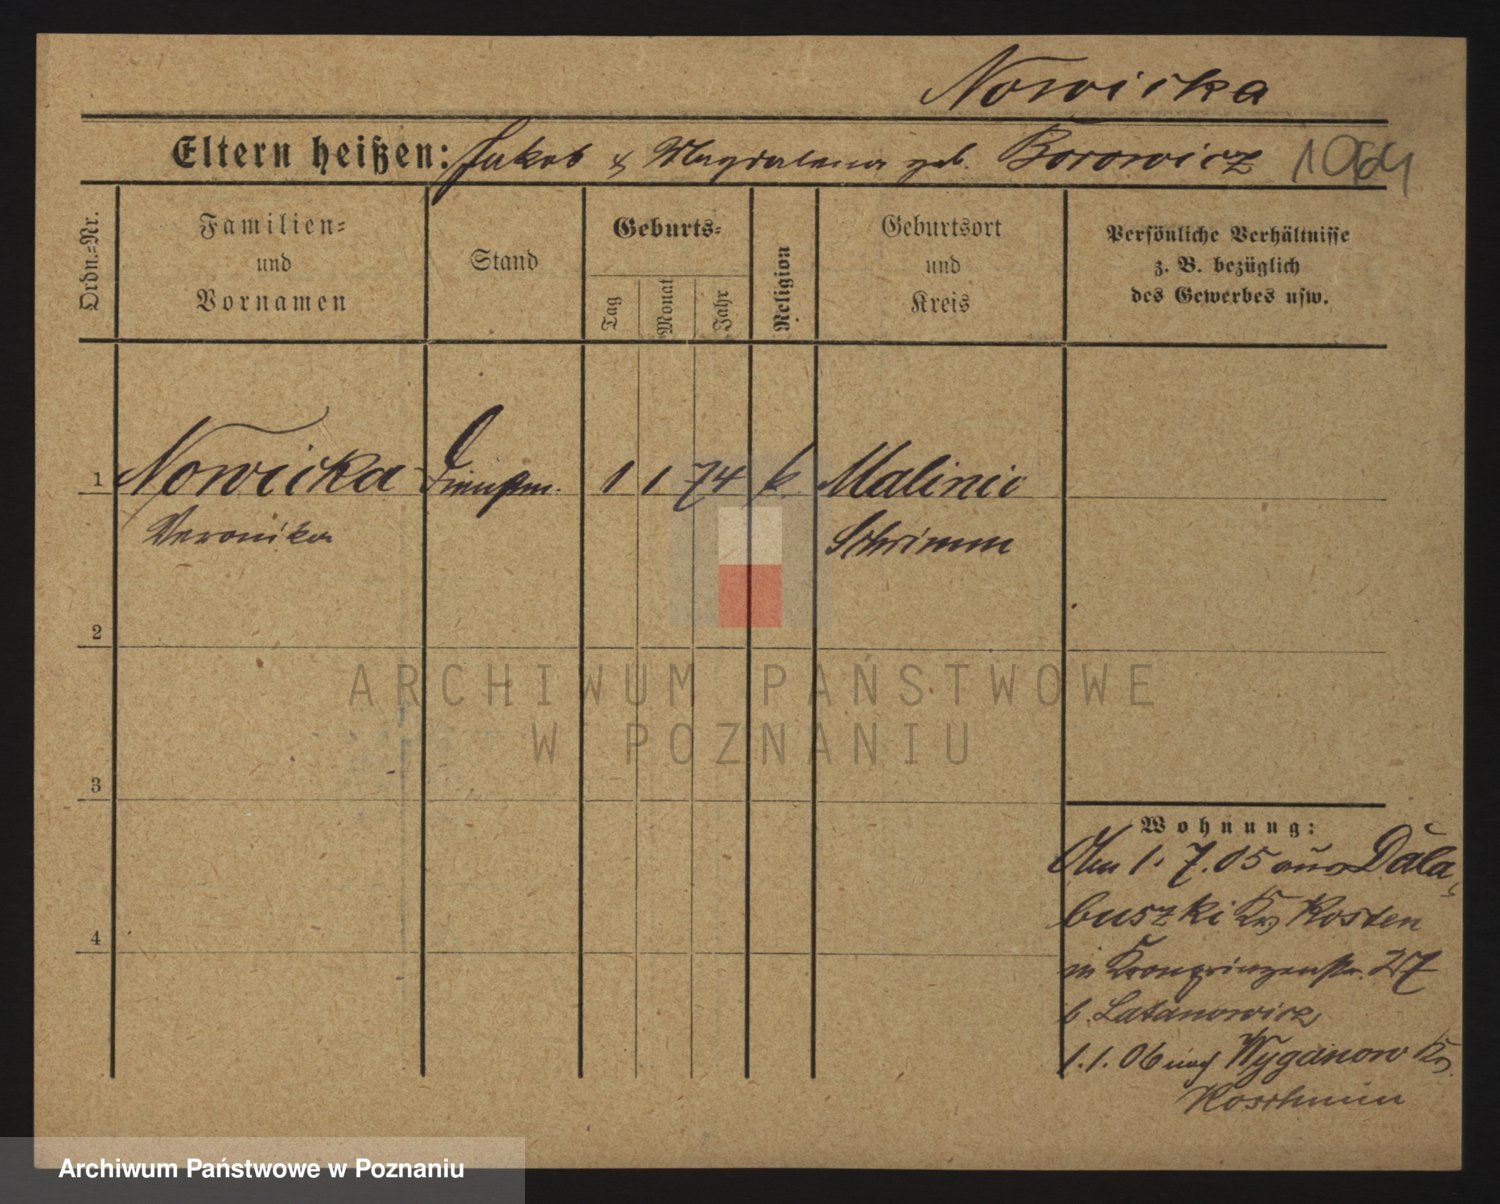 Nowicka
Eltern heißen: Jakob & Magdalena geb. Borowicz 1064
Ordn.-Nr.
Familien- und Vornamen
Stand
Geburts-
Tag
Monat
Jahr
Religion
Geburtsort und Kreis
Persönliche Verhältnisse
z. B. bezüglich
des Gewerbes usw.
1 Nowicka Dienstm. 1 1 74 k. Malinie
Veronika Schrimm
2
ARCHIWUM PAŃSTWOWE
W POZNANIU
3
Wohnung:
Am 1. 7. 05 aus Dala-
buszki Kr. Kosten
4
in Kronprinzenstr. 27
b. Latanowicz
1.1.06 nach Wyganow Kr.
Koschmin
Archiwum Państwowe w Poznaniu